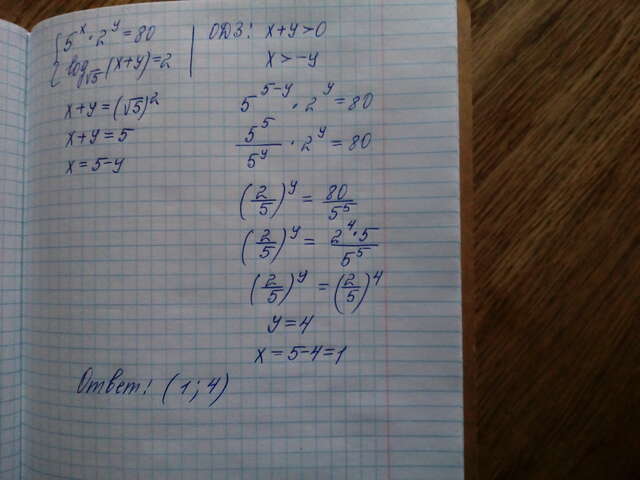 { 5^x · 2^y = 80
log_√5 (x+y) = 2
x+y = (√5)^2
x+y = 5
x = 5-y
ОДЗ: x+y > 0
x > -y
5^(5-y) · 2^y = 80
5^5/5^y · 2^y = 80
(2/5)^y = 80/5^5
(2/5)^y = 2^4·5/5^5
(2/5)^y = (2/5)^4
y = 4
x = 5-4 = 1
Ответ: (1; 4)